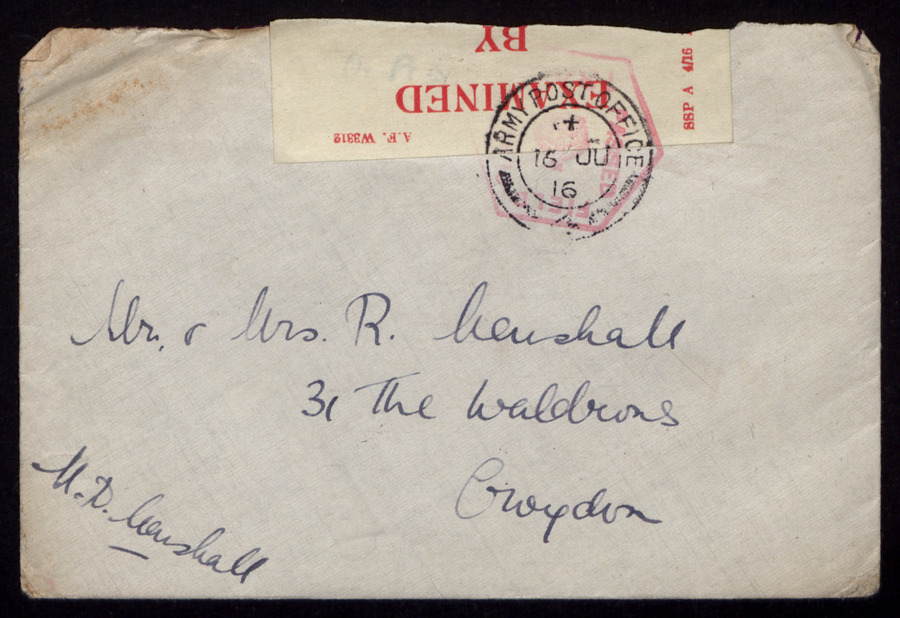 BY
EXAMINED
A.F. W3312
SSP A 4/16
ARMY POST OFFICE
16 JU
16
FIELD
Mr. & Mrs. R. Henshall
31 The Waldrons
Croydon
M.D. Henshall